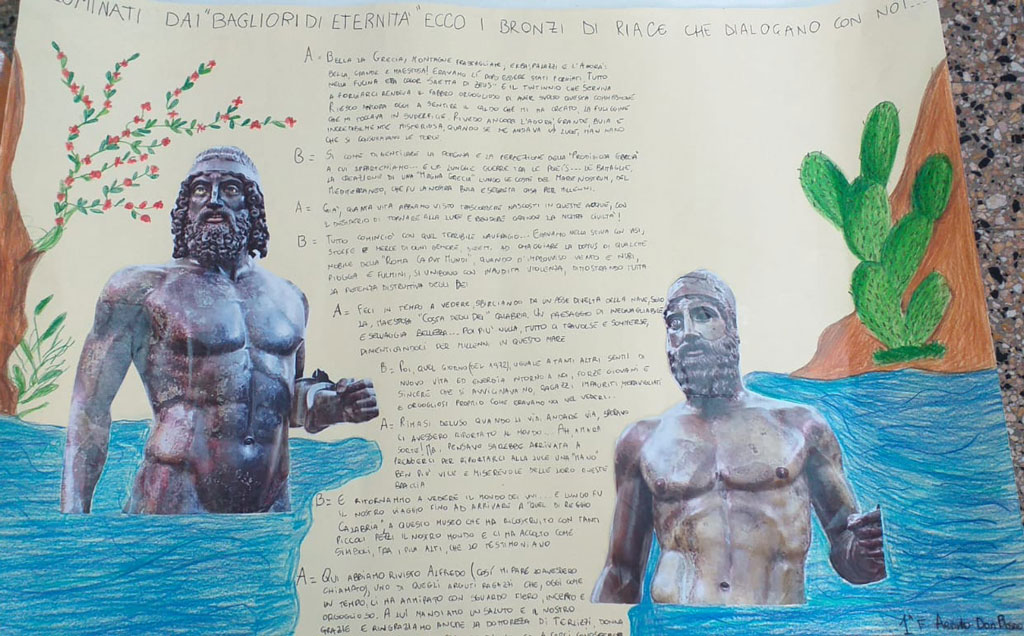 LUMINATI DAI "BAGLIORI DI ETERNITÀ" ECCO I BRONZI DI RIACE CHE DIALOGANO CON NOI...
A = BELLA LA GRECIA, MONTAGNE FRASTAGLIATE, ERBA, PALAZZI E L'AGORÀ:
BELLA, GRANDE E MAESTOSA! ERAVAMO LÌ DOPO ESSERE STATI FORGIATI. TUTTO
NELLA FUCINA ERA CALOR SAETTA DI ZEUS. E IL TINTINNIO CHE SERVIVA
A FORGIARCI RENDEVA IL FABBRO ORGOGLIOSO DI AVER SVOLTO QUESTA COMMISSIONE
RIESCO ANCORA OGGI A SENTIRE IL CALDO CHE MI HA CREATO, LA FULIGGINE
CHE MI TOCCAVA IN SUPERFICIE. RIVEDO ANCORA L'AGORÀ, GRANDE BUIA E
INCREDIBILMENTE MISERIOSA, QUANDO SE NE ANDAVA VIA LUCE, MAN MANO
CHE SI CONSUMAVANO LE TORCE
B = SÌ COME DIMENTICARE LA POTENZA E LA PERFEZIONE DELLA "PRODIGIOSA GRECIA"
A CUI APPARTENIAMO... E LE LUNGHE GUERRE TRA LE POLEIS... LE BATTAGLIE,
LA CREAZIONE DI UNA "MAGNA GRECIA" LUNGO LE COSTE DEL MARE NOSTRUM, DEL
MEDITERRANEO, CHE FU LA NOSTRA BUIA E SEGRETA CASA PER MILLENNI.
A = GIÀ, QUANTA VITA ABBIAMO VISTO TRASCORRERE NASCOSTI IN QUESTE ACQUE, CON
L'DESIDERIO DI TORNARE ALLA LUCE E RENDERE GRANDE LA NOSTRA CIVILTÀ!
B = TUTTO COMINCIÒ CON QUEL TERRIBILE NAUFRAGIO... ERAVAMO NELLA STIVA CON ASI,
STOFFE E MERCE DI OGNI GENERE AD OMAGGIARE LA DOMUS DI QUALCHE
NOBILE DELLA "ROMA CAPUT MUNDI", QUANDO D'IMPROVVISO VENTO E NUBI,
PIOGGIA E FULMINI, SI UNIRONO CON INAUDITA VIOLENZA, DIMOSTRANDO TUTTA
LA POTENZA DISTRUTTIVA DEGLI DEI
A = FECI IN TEMPO A VEDERE, SBIRCIANDO DA UN'ASSE DIVELTA DELLA NAVE, SOLO
LA MAESTOSA "COSTA DEGLI DEI" CALABRIA. UN PAESAGGIO DI INEGUAGLIABILE
E SELVAGGIA BELLEZZA... POI PIÙ NULLA, TUTTO CI TRAVOLSE E SOMMERSE,
DIMENTICANDOCI PER MILLENNI IN QUESTO MARE
B = POI, QUEL GIORNO (DEL 1972), UGUALE A TANTI ALTRI SENTII DI
NUOVO VITA ED ENERGIA INTORNO A NOI, FORZE GIOVANI E
SINCERE CHE SI AVVICINAVANO, RAGAZZI IMPAURITI MERAVIGLIATI
E ORGOGLIOSI PROPRIO COME ERAVAMO NOI NEL VEDERLI...
A = RIMASI DELUSO QUANDO LI VIDI ANDARE VIA, SPERAVO
CI AVESSERO RIPORTATO IL MONDO... AH, AMARA
SORTE! MAI PENSAVO SAREBBE ARRIVATA A
PRENDERCI PER RIPORTARCI ALLA LUCE UNA "MANO"
BEN PIÙ VILE E MISEREVOLE DELLE LORO ONESTE
BRACCIA
B = E RITORNAMMO A VEDERE IL MONDO DEI VIVI... E LUNGO FU
IL NOSTRO VIAGGIO FINO AD ARRIVARE A "QUEL DI REGGIO
CALABRIA", A QUESTO MUSEO CHE HA RICOSTRUITO CON TANTI
PICCOLI PEZZI IL NOSTRO MONDO E CI HA ACCOLTO COME
SIMBOLI, TRA I PIÙ ALTI, CHE LO TESTIMONIANO
A = QUI ABBIAMO RIVISTO ALFREDO (COSÌ MI PARE LO AVESSERO
CHIAMATO), UNO DI QUEGLI ARGUTI RAGAZZI CHE, OGGI COME
UN TEMPO, CI HA AMMIRATO CON SGUARDO FIERO, INCERTO E
ORGOGLIOSO. A LUI MANDIAMO UN SALUTO E IL NOSTRO
GRAZIE E RINGRAZIAMO ANCHE LA DOTTORESSA DI TERLIZZI, DONNA
1ª F